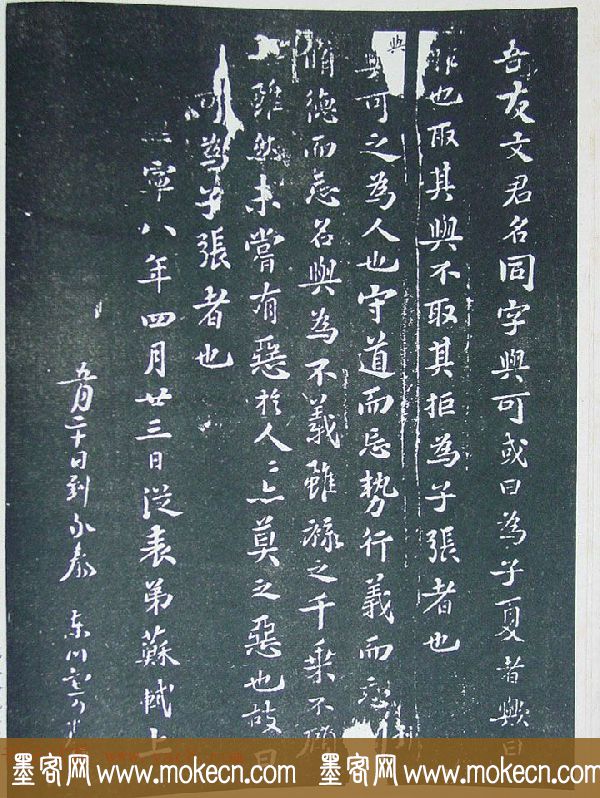 吾友文君名同字與可或曰為子夏者歟曰
非也取其與不取其拒為子張者也
與
與可之為人也守道而忘勢行義而忘
脩德而忘名與為不義雖祿之千乘不顧
雖然未嘗有惡於人人亦莫之惡也故曰
可為子張者也
寧八年四月廿三日從表弟蘇軾上
五月二十日到永泰
墨客网 www.mokecn.com 墨客网 www.mokecn.com